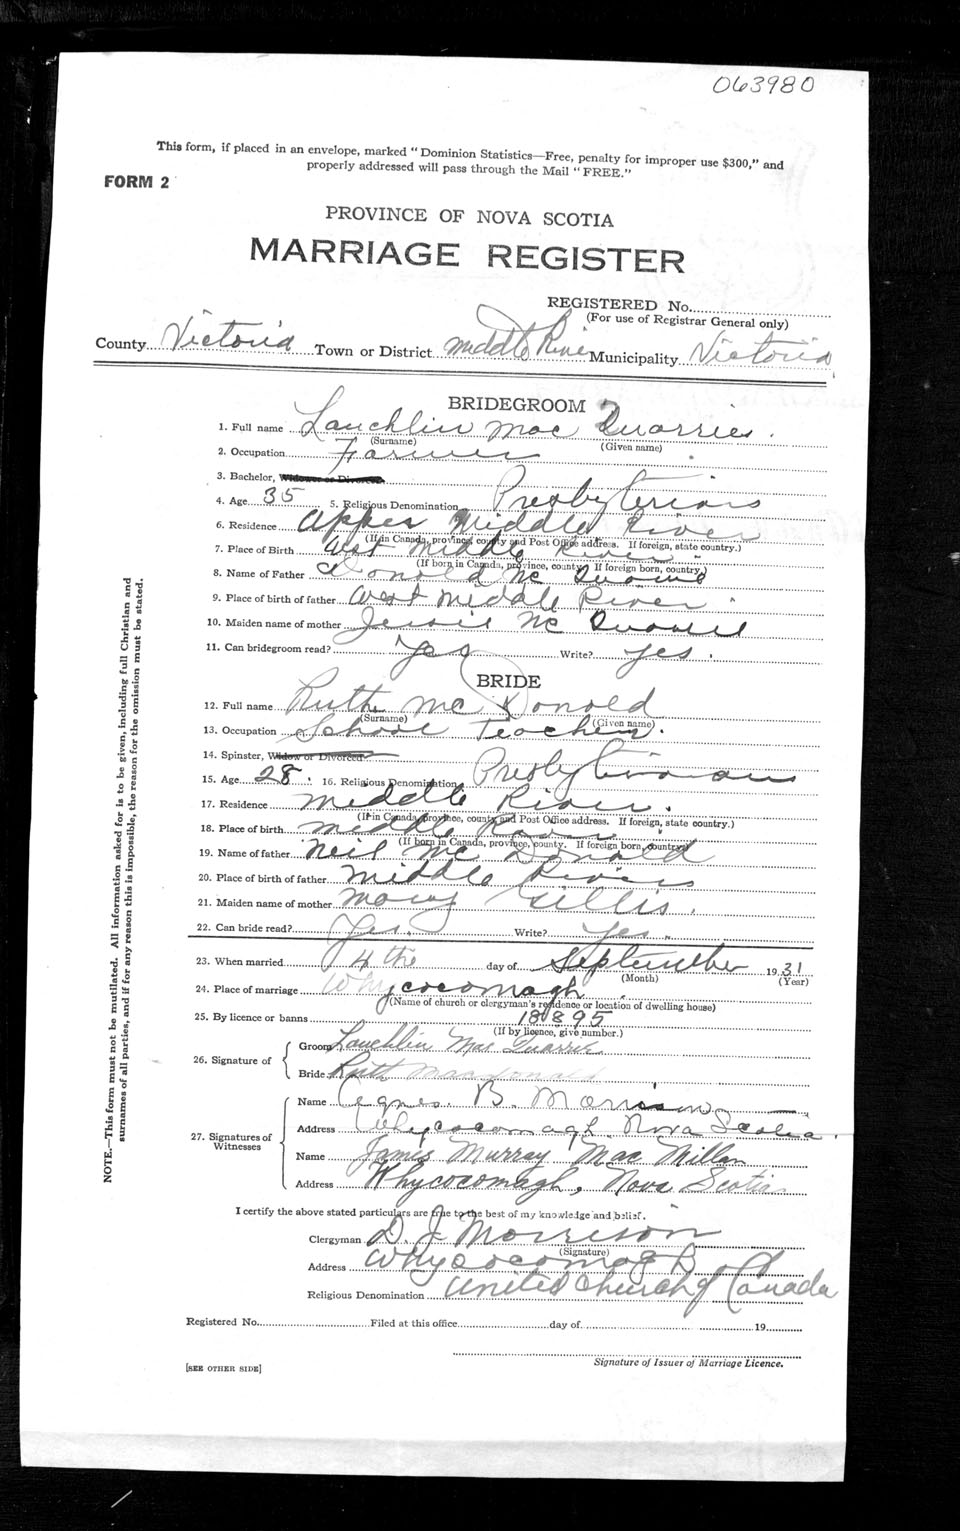 063980
This form, if placed in an envelope, marked "Dominion Statistics—Free, penalty for improper use $300," and
properly addressed will pass through the Mail "FREE."
FORM 2
PROVINCE OF NOVA SCOTIA
MARRIAGE REGISTER
REGISTERED No.
(For use of Registrar General only)
County Victoria Town or District Middle River Municipality Victoria
BRIDEGROOM
1. Full name Lauchlin Mac Quarrie.
(Surname) (Given name)
2. Occupation Farmer
3. Bachelor, Widower or Divorced
4. Age 35 5. Religious Denomination Presbyterians
6. Residence Upper Middle River
(If in Canada, province, county and Post Office address. If foreign, state country.)
7. Place of Birth West Middle River
(If born in Canada, province, county. If foreign born, country.)
8. Name of Father Donald Mc Quarrie
9. Place of birth of father West Middle River
10. Maiden name of mother Jessie Mc Quarrie
11. Can bridegroom read? Yes Write? Yes.
BRIDE
12. Full name Ruth Mc Donald
(Surname) (Given name)
13. Occupation School Teacher.
14. Spinster, Widow or Divorced
15. Age 28 16. Religious Denomination Presbyterian
17. Residence Middle River.
(If in Canada, province, county and Post Office address. If foreign, state country.)
18. Place of birth Middle River
(If born in Canada, province, county. If foreign born, country)
19. Name of father Neil Mc Donald
20. Place of birth of father Middle River
21. Maiden name of mother Mary Gillis.
22. Can bride read? Yes. Write? Yes.
23. When married 4 the day of September 1931
(Month) (Year)
24. Place of marriage Whycocomagh.
(Name of church or clergyman's residence or location of dwelling house)
25. By licence or banns 18895
(If by licence, give number.)
26. Signature of
Groom Lauchlin Mac Quarrie
Bride Ruth MacDonald
27. Signatures of Witnesses
Name Agnes B. Morrison
Address Whycocomagh Nova Scotia.
Name James Murray Mac Millan
Address Whycocomagh, Nova Scotia
I certify the above stated particulars are true to the best of my knowledge and belief.
Clergyman D. J. Morrison
(Signature)
Address Whycocomagh
Religious Denomination United Church of Canada
Registered No. Filed at this office day of 19
Signature of Issuer of Marriage Licence.
[SEE OTHER SIDE]
NOTE.—This form must not be mutilated. All information asked for is to be given, including full Christian and
surnames of all parties, and if for any reason this is impossible, the reason for the omission must be stated.